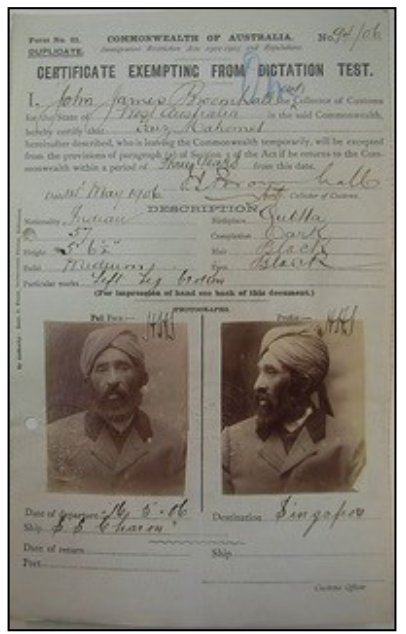 Form No. 21. COMMONWEALTH OF AUSTRALIA. No. 94/06
DUPLICATE. Immigration Restriction Acts 1901-1905 and Regulations.
CERTIFICATE EXEMPTING FROM DICTATION TEST.
I, John James Broomhall Collector of Customs
for the State of West Australia in the said Commonwealth,
hereby certify that Faiz Mahomet
hereinafter described, who is leaving the Commonwealth temporarily, will be excepted
from the provisions of paragraph (a) of Section 3 of the Act if he returns to the Com-
monwealth within a period of Three Years from this date.
May 1906
Collector of Customs.
DESCRIPTION
Nationality Indian Birthplace Quetta
57 Complexion Dark
Height 5' 6½" Hair Black
Build Medium Eyes Black
Particular marks Left Leg broken
(For impression of hand see back of this document.)
PHOTOGRAPHS
Full Face Profile
Date of departure 16.5.06 Destination Singapore
Ship S S Charon
Date of return Ship
Port
Customs Officer